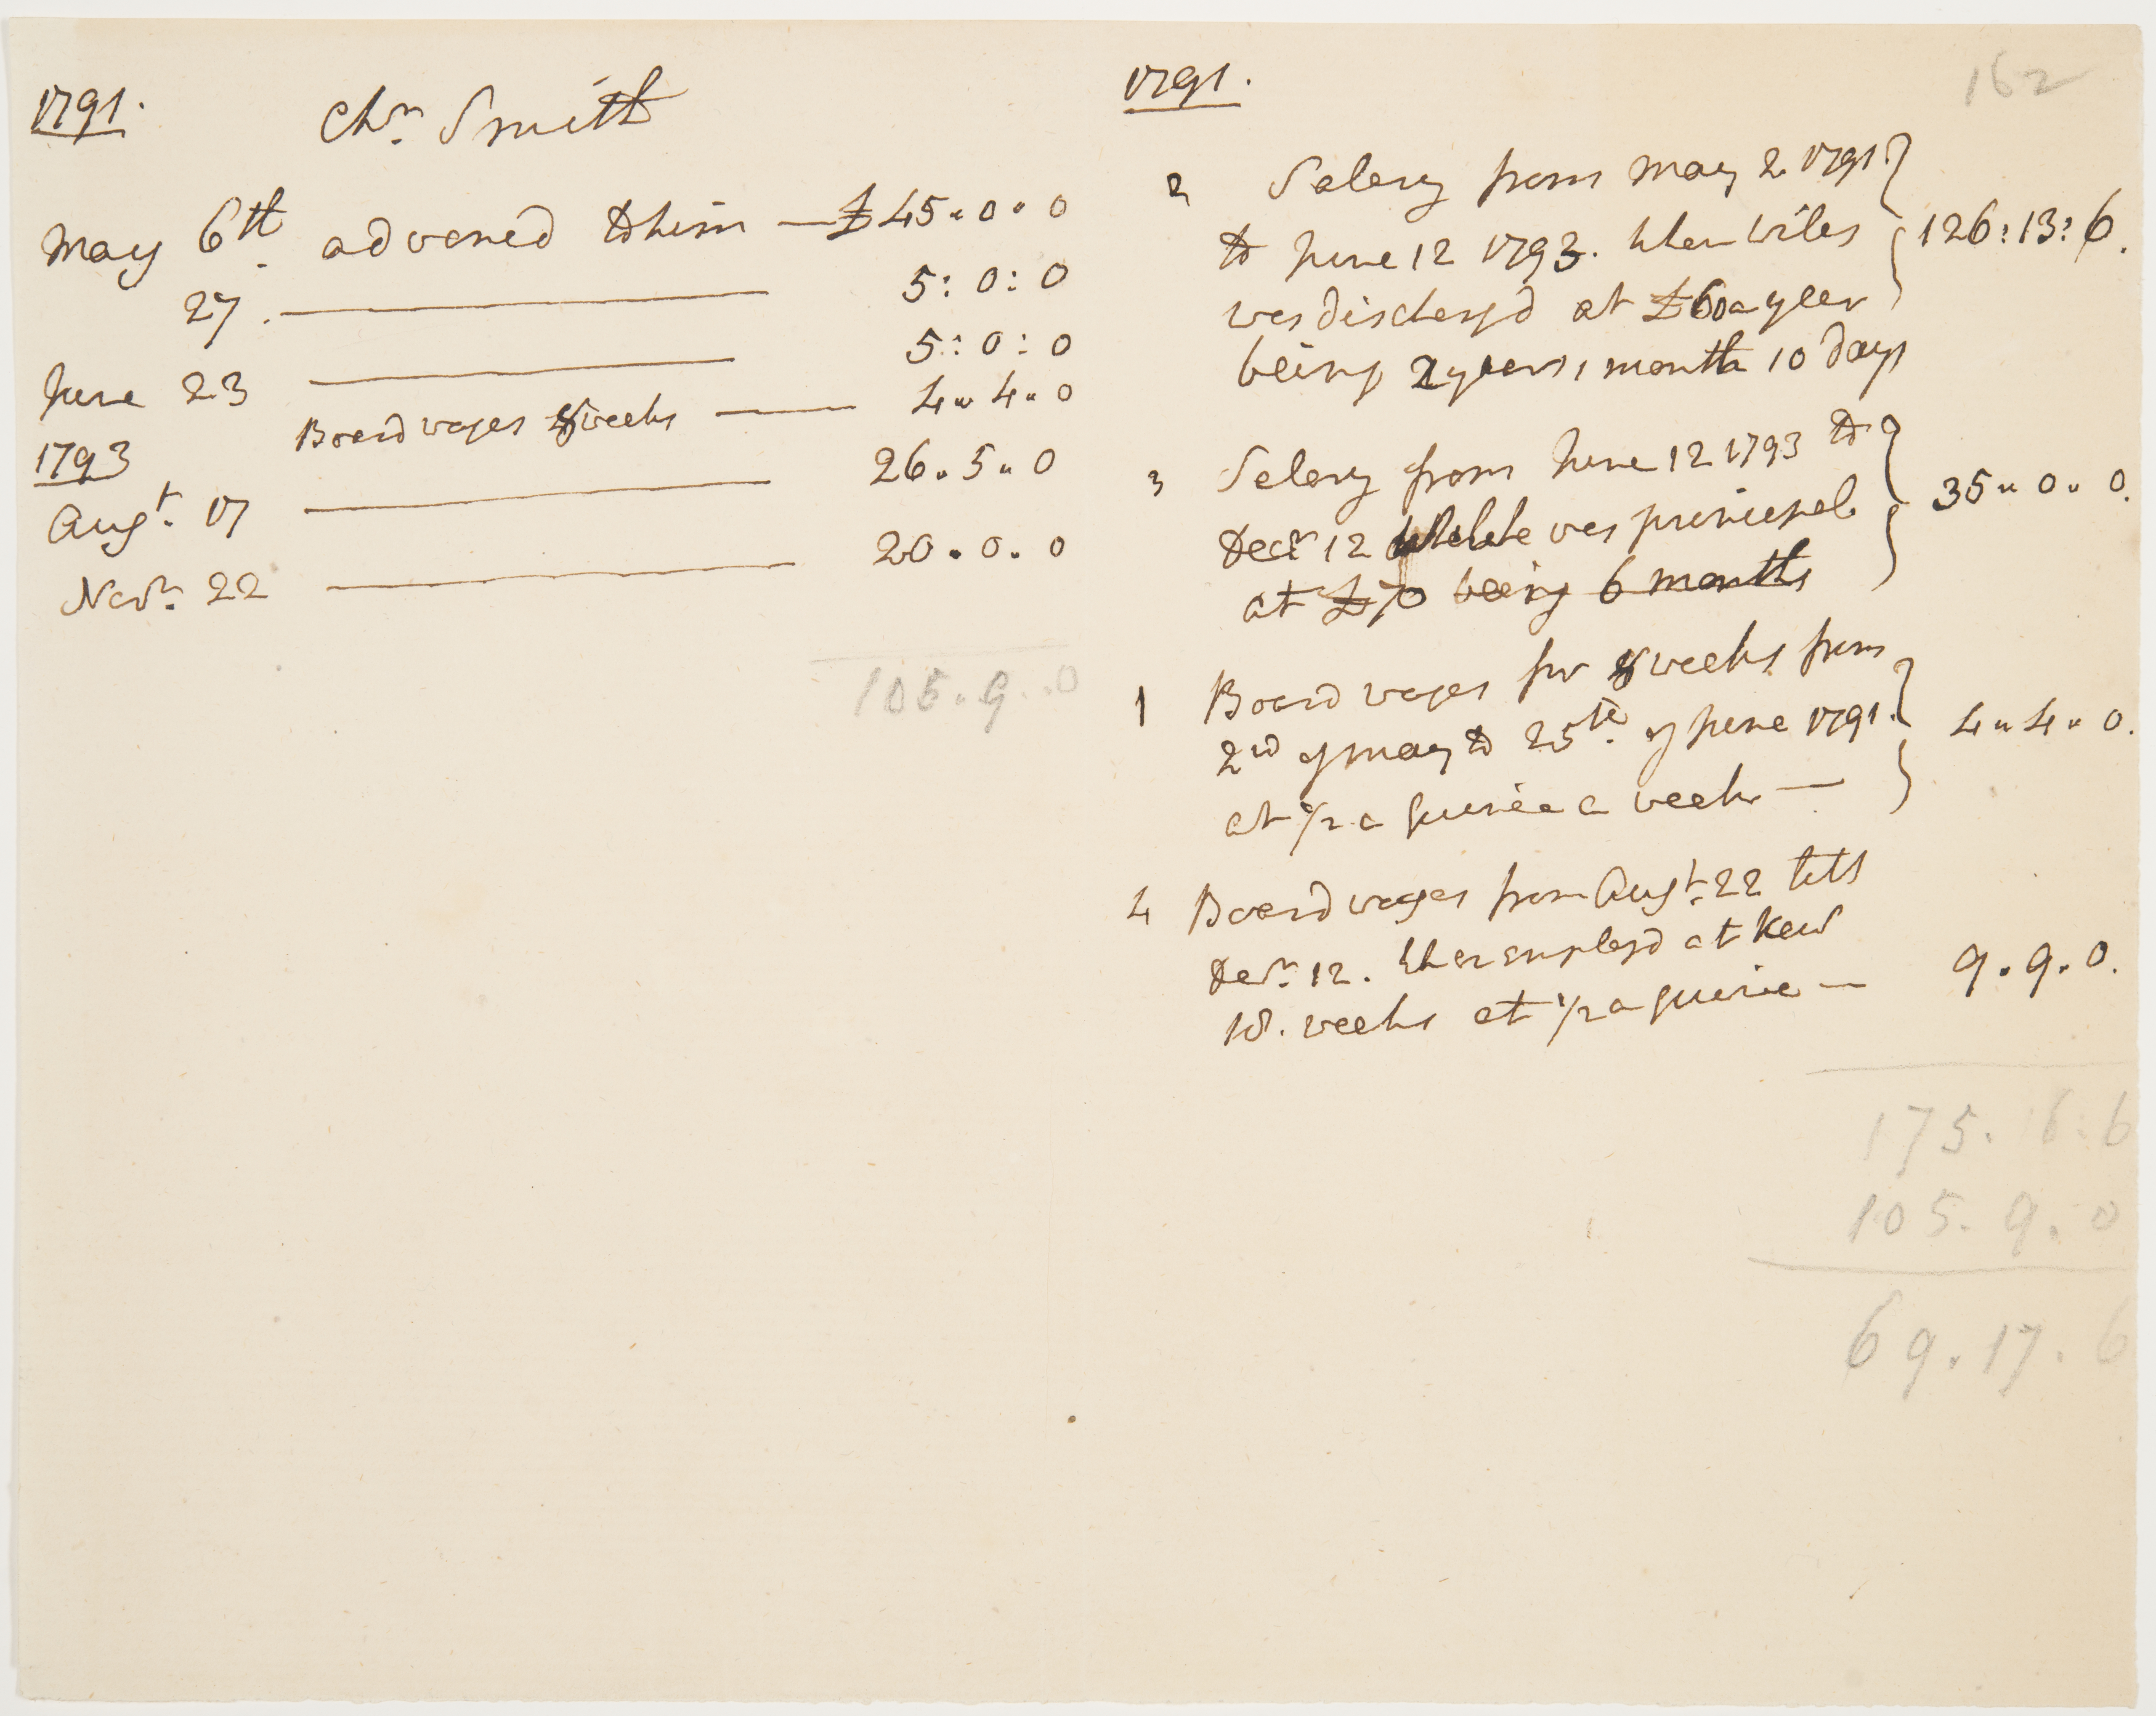 1791. Chr. Smith
May 6th. advanced to him — £45 " 0 " 0
27. — 5 : 0 : 0
June 23 — 5 : 0 : 0
Board wages 8 weeks — 4 " 4 " 0
1793
Augt. 17 — 26 . 5 " 0
Novr. 22 — 20 . 0 . 0
105 . 9 . . 0
162
1791.
2 Salary from May 2 1791.
to June 12 1793. when Wiles 126 : 13 : 6.
was dischargd at £60 a year
being 2 years 1 month 10 days
3 Salary from June 12 1793 to
Decr 12 while he was principal 35 " 0 " 0.
at £70 being 6 months
1 Board wages for 8 weeks from
2nd of may to 25th. of June 1791. 4 " 4 " 0.
at 1/2 a guinea a week —
4 Board wages from Augt. 22 till
Decr. 12. when employd at Kew 9 . 9 . 0.
18. weeks at 1/2 a guinea —
175. 6. 6
105. 9. 0
69. 17. 6